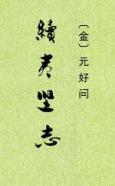 〔金〕元好问
續夷坚志